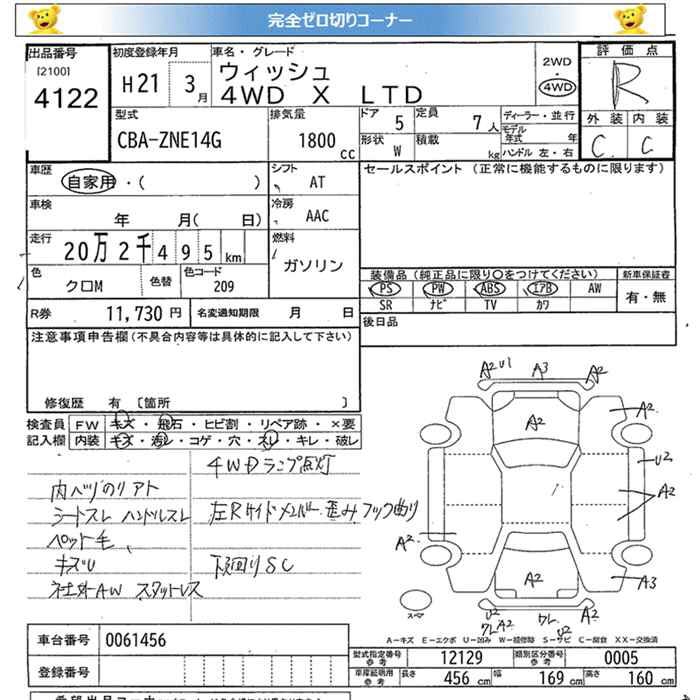 完全ゼロ切りコーナー
出品番号 [2100] 4122
初度登録年月 H21 3月
車名・グレード ウィッシュ 4WD X LTD
2WD 4WD
評価点 R
外装 C 内装 C
型式 CBA-ZNE14G
排気量 1800cc
ドア 5 定員 7人
形状 W 積載 kg
ディーラー・並行
モデル年式 年
ハンドル 左・右
車歴 自家用・( )
シフト AT
セールスポイント (正常に機能するものに限ります)
車検 年 月( 日)
冷房 AAC
走行 20万2千495km
燃料 ガソリン
色 クロM 色替 色コード 209
装備品(純正品に限り○をつけてください) 新車保証書
PS PW ABS エアB AW 有・無
SR ナビ TV カワ
R券 11,730円 名変通知期限 月 日
後日品
注意事項申告欄(不具合内容等は具体的に記入して下さい)
修復歴 有 〔箇所 〕
検査員記入欄 FW キズ・飛石・ヒビ割・リペア跡・×要
内装 キズ・汚レ・コゲ・穴・スレ・キレ・破レ
4WDランプ点灯
シートスレ ハンドルスレ
左Rサイドメンバー歪み フック曲り
ペット毛
キズU
下回りSC
社外AW スタットレス
A2 U1 A3 A2
A2 A2
U2
A2
A2
A2 A3
スペア
U2 A2
クレ A2 クレ U2
A-キズ E-エクボ U-凹み W-補修跡 S-サビ C-腐食 XX-交換済
車台番号 0061456
型式指定番号参考 12129 類別区分番号参考 0005
登録番号
車庫証明用参考 長さ 456 cm 幅 169 cm 高さ 160 cm